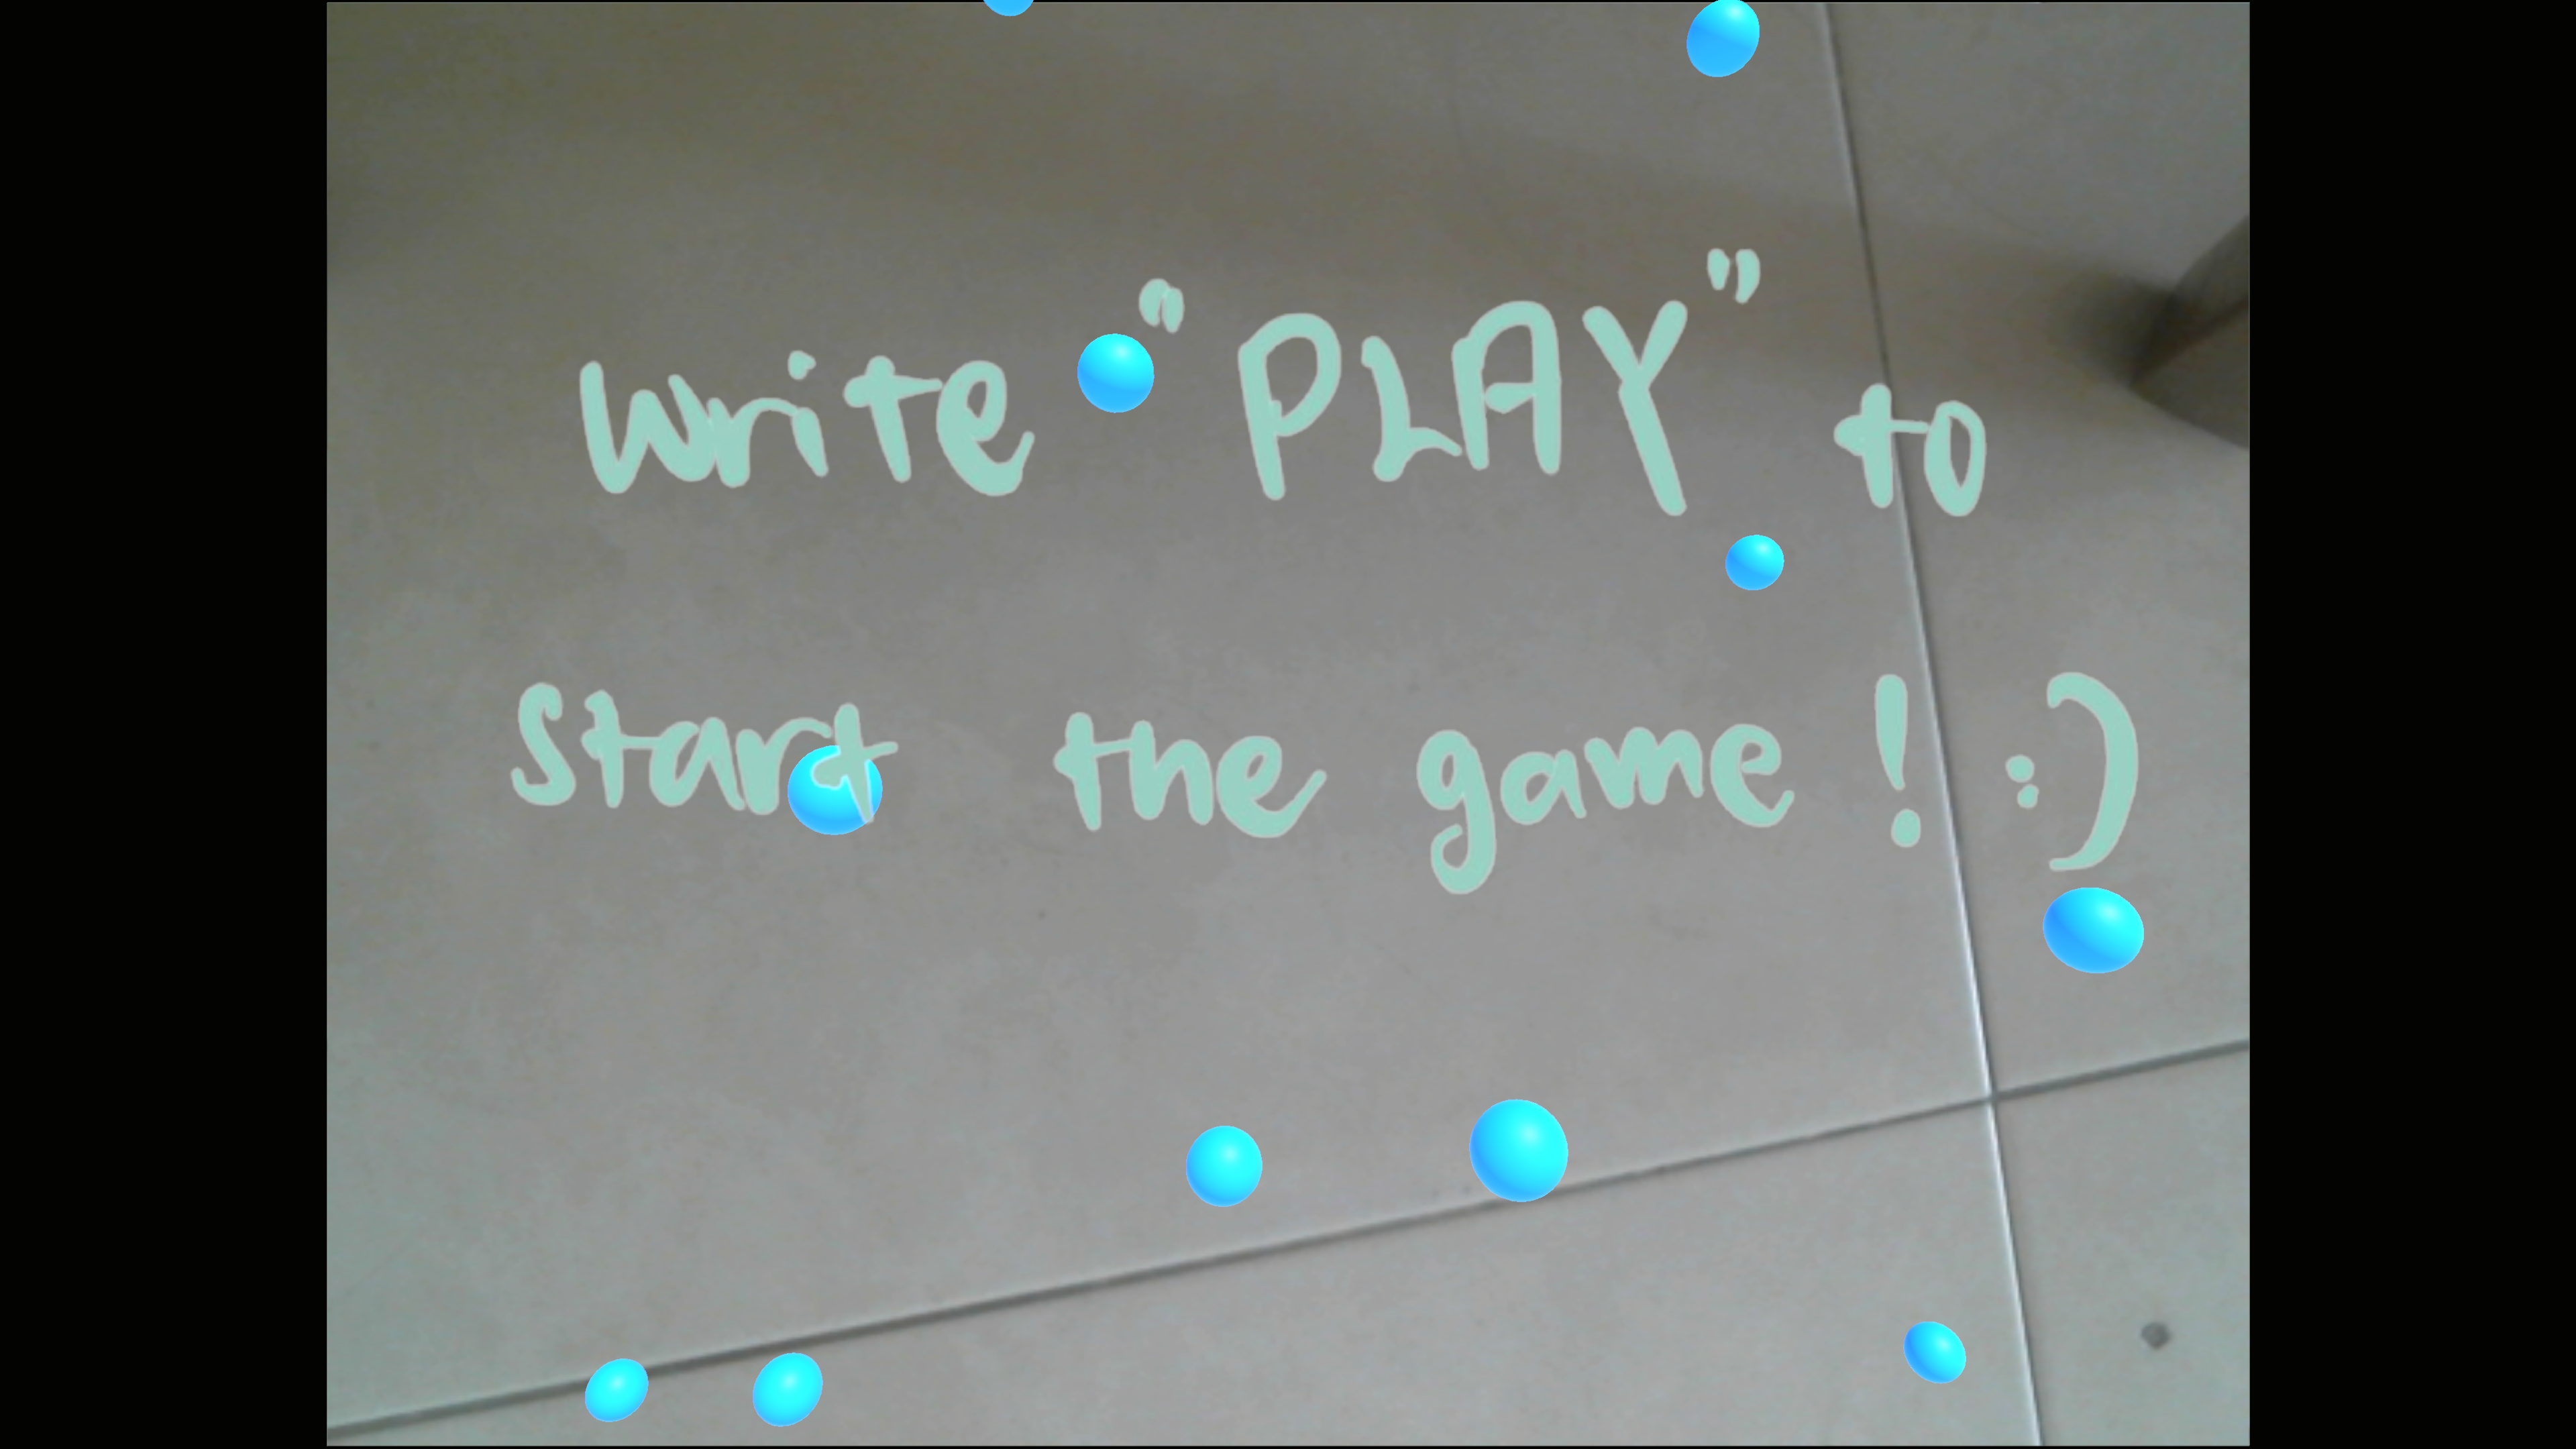 Write "PLAY" to
Start the game! :)